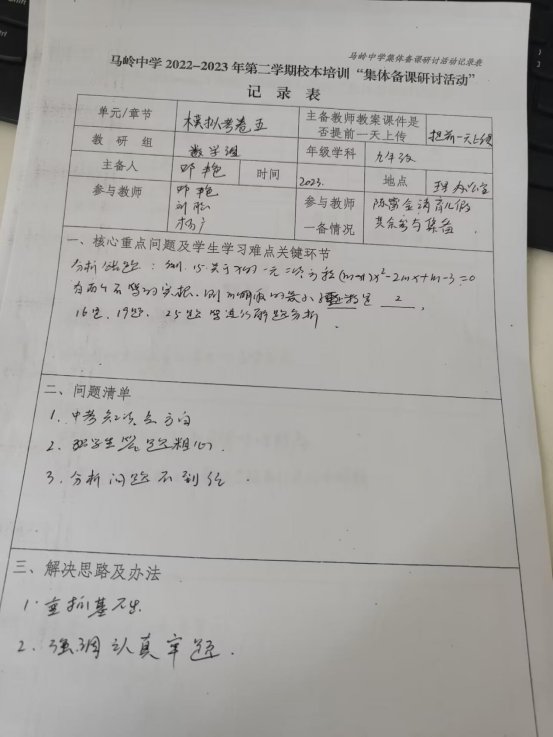 马岭中学集体备课研讨活动记录表
马岭中学 2022-2023 年第二学期校本培训“集体备课研讨活动”
记 录 表
单元/章节 模拟考卷五 主备教师教案课件是否提前一天上传 提前一天上传
教 研 组 数学组 年级学科 九年级
主备人 邓艳 时间 2023. 地点 理办公室
参与教师 邓艳 参与教师一备情况 请育儿假
杨广 其余参与集备
一、核心重点问题及学生学习难点关键环节
分析 题：例.15.关于x的一元二次方程(m+1)x²-2mx+m-3=0
有两个不等的实根，则 m 取的最小整数是 2 ，
16题、19题、25题 等进行解题分析
二、问题清单
1. 中考知识点方向
2. 学生答题粗心.
3. 分析问题不到位
三、解决思路及办法
1. 重抓基础
2. 强调认真审题.